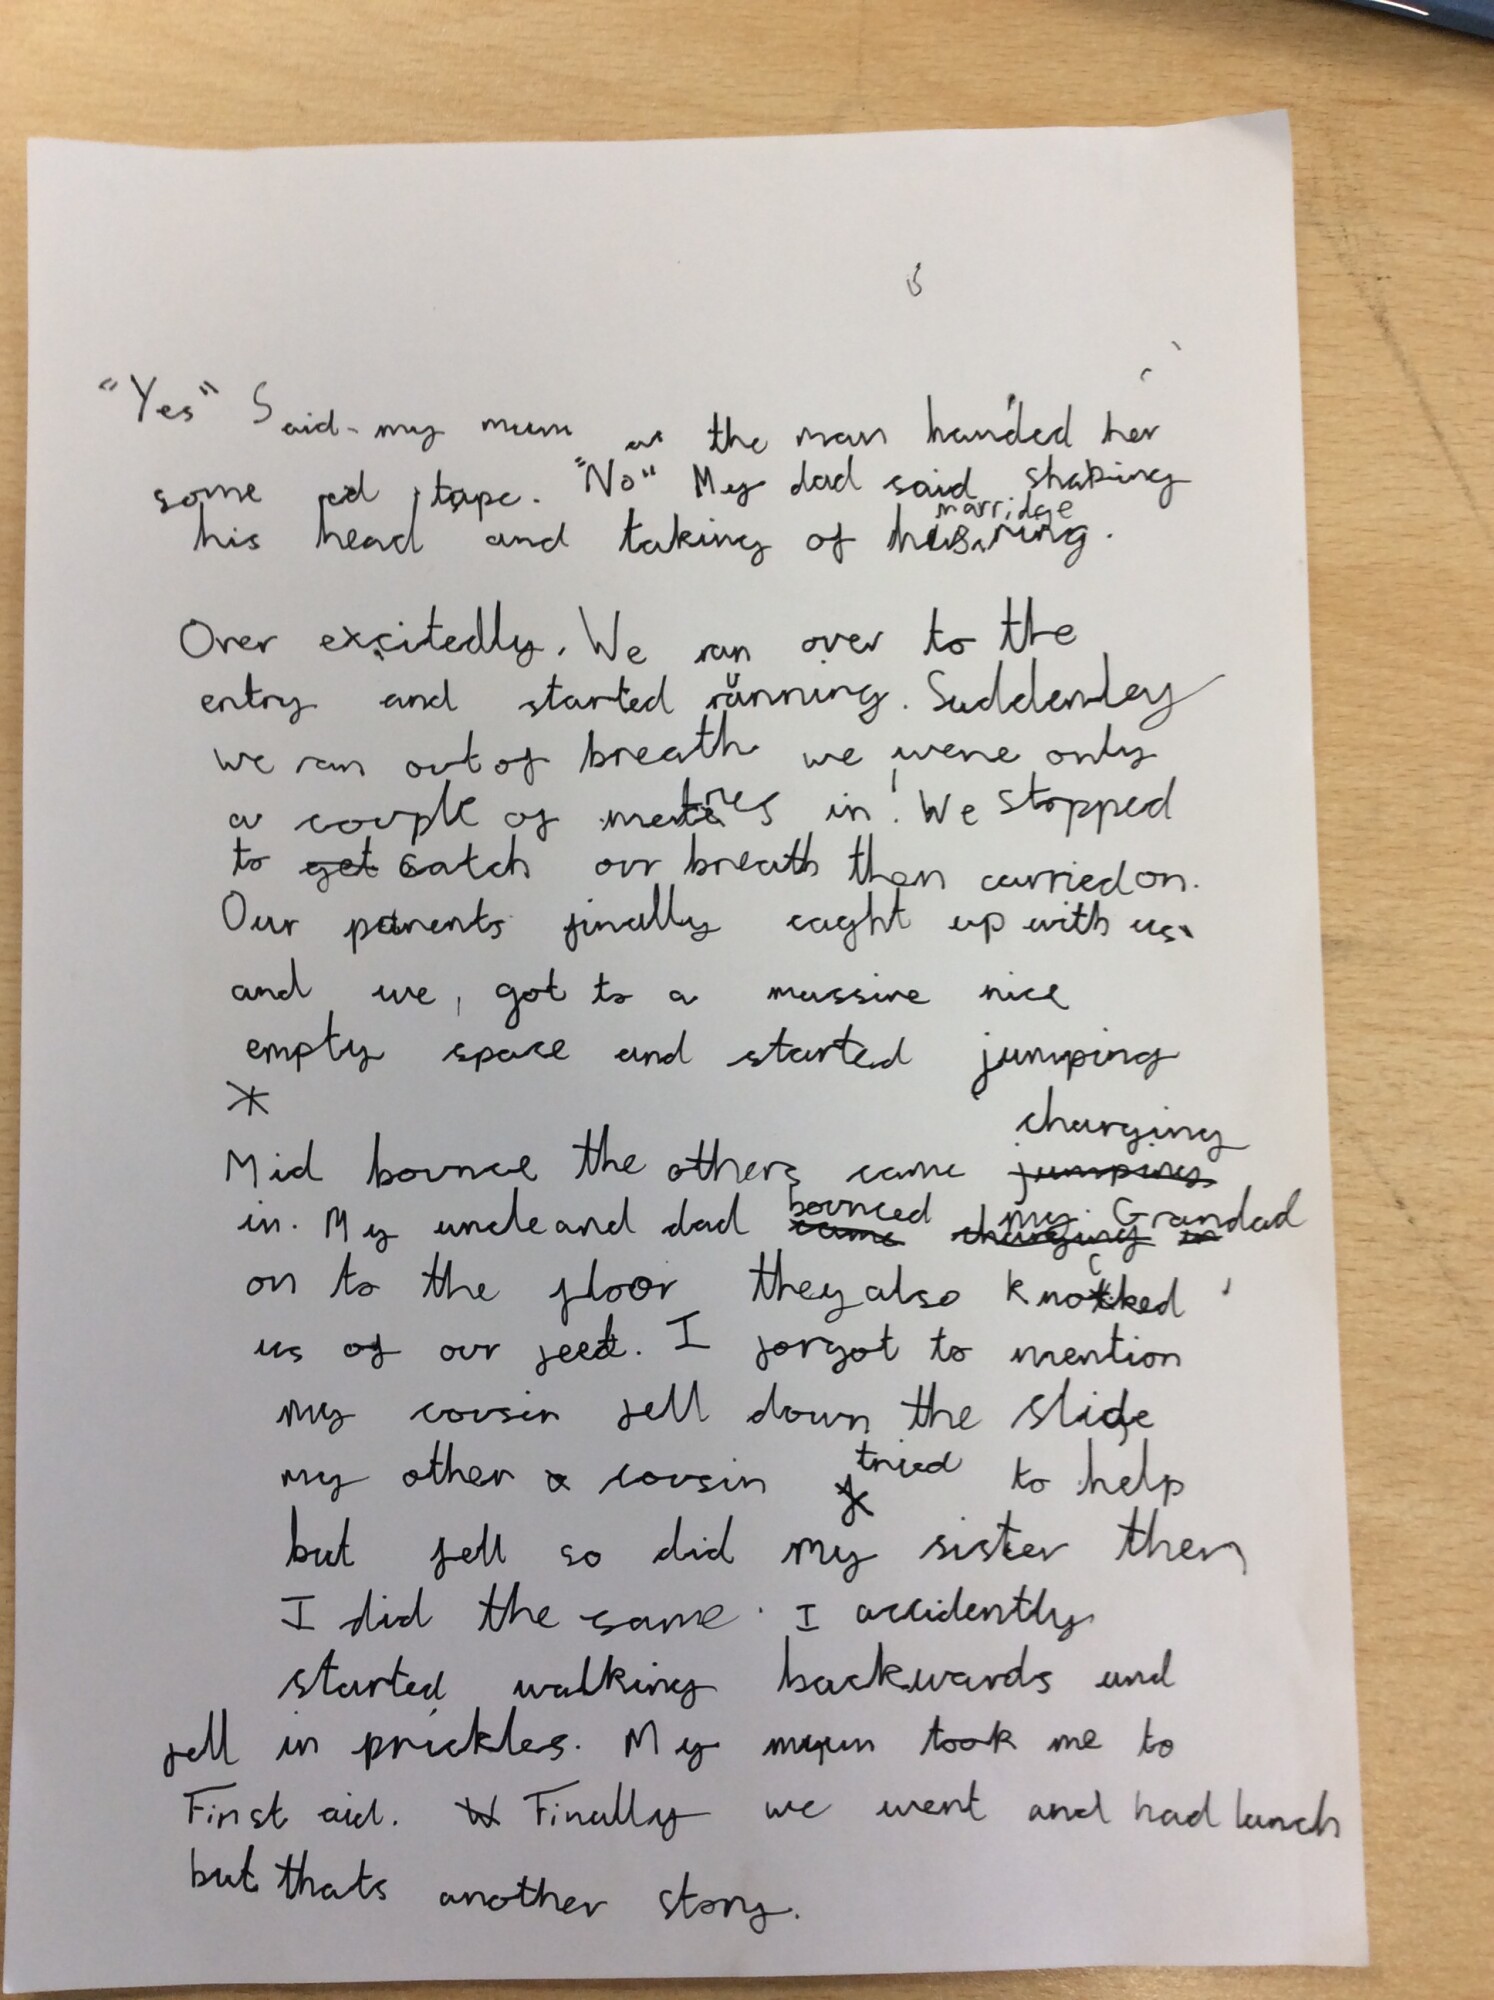 "Yes" Said my mum as the man handed her
some red tape. "No" My dad said shaking
his head and taking of his marridge ring.
Over excitedly. We ran over to the
entry and started running. Suddenley
we ran out of breath we were only
a couple of metres in! We stopped
to get catch our breath then carried on.
Our parents finally caght up with us
and we, got to a massive nice
empty space and started jumping
*
Mid bounce the others came jumping charging
in. My uncle and dad came charging in bounced my Grandad
on to the floor they also knocked
us of our feet. I forgot to mention
my cousin fell down the slide
my other cousin tried to help
but fell so did my sister then
I did the same. I accidently
started walking backwards and
fell in prickles. My mum took me to
First aid. W Finally we went and had lunch
but thats another story.